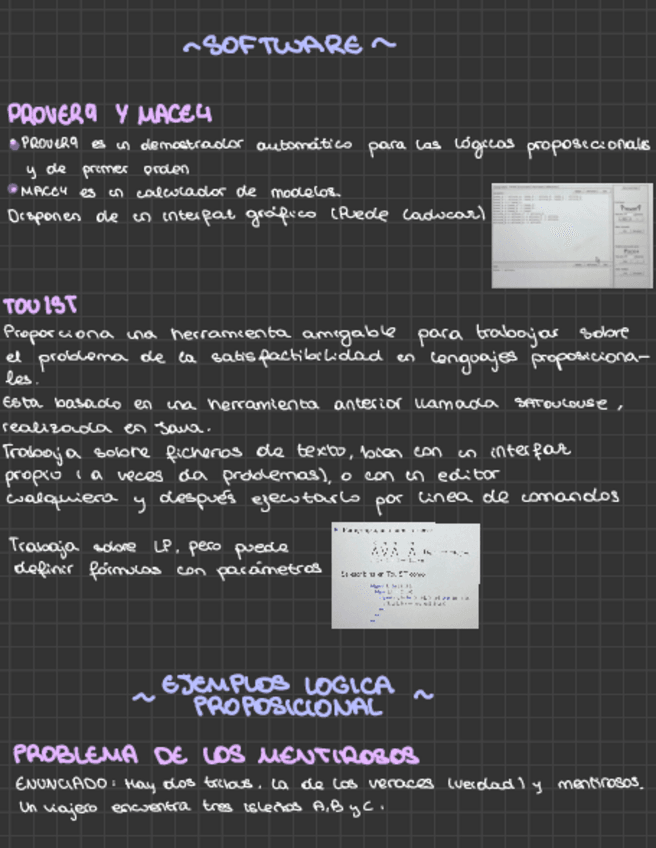 ~SOFTWARE~
PROVER9 Y MACE4
• PROVER9 es un demostrador automático para las lógicas proposicionales
y de primer orden
• MACE4 es un calculador de modelos.
Disponen de un interfaz gráfico (Puede caducar)
TOUIST
Proporciona una herramienta amigable para trabajar sobre
el problema de la satisfactibilidad en lenguajes proposiciona-
les.
Esta basado en una herramienta anterior llamada SAToulouse,
realizada en Java.
Trabaja sobre ficheros de texto, bien con un interfaz
propio (a veces da problemas), o con un editor
cualquiera y después ejecutarlo por linea de comandos
Trabaja sobre LP, pero puede
definir fórmulas con parámetros
~ EJEMPLOS LOGICA ~
PROPOSICIONAL
PROBLEMA DE LOS MENTIROSOS
ENUNCIADO: Hay dos tribus, la de los veraces (verdad) y mentirosos.
Un viajero encuentra tres isleños A, B y C.